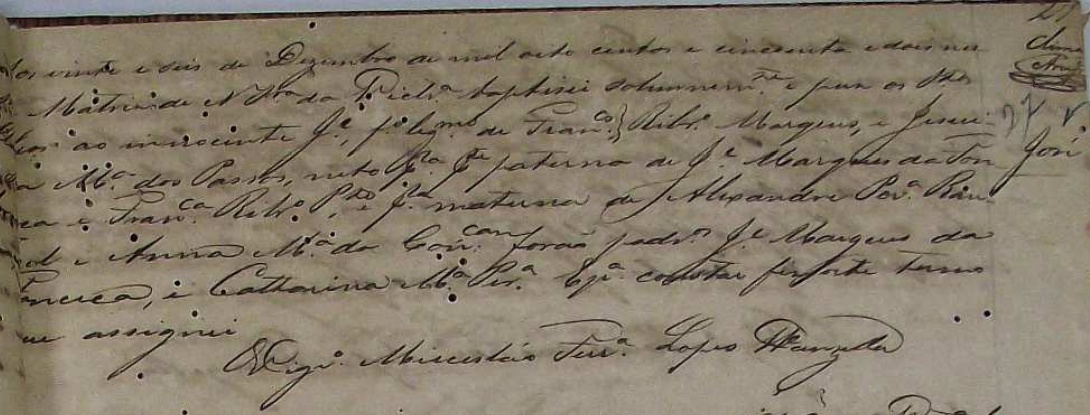 Aos vinte e seis de Dezembro de mil oito centos e cincoenta e dois nes
Matriz de N Srª da Piedª baptisei solemnemte e pus os Stos
oleos ao innocente Je, fo legmo de Franco Ribro Marques, e Jesui
na Mª dos Passos, neto pta pte paterna de Je Marques da Fon
ceca e Franca Ribro e pta materna de Alexandre Perª Ran
el e Anna Mª da Concam forão padros Je Marques da
Fonceca, e Catharina Mª Perª Epª constar fiz este termo
que assignei
O Vigro Miscesláo Ferrª Lopes Wanzeller
José